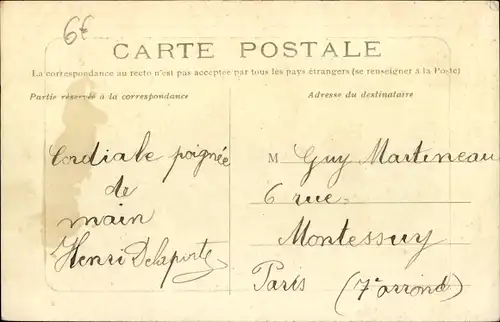 6€
CARTE POSTALE
La correspondance au recto n'est pas acceptée par tous les pays étrangers (se renseigner à la Poste)
Partie réservée à la correspondance
Adresse du destinataire
Cordiale poignée
de
main
Henri Delaporte
M Guy Martineau
6 rue
Montessuy
Paris (7e arrond)